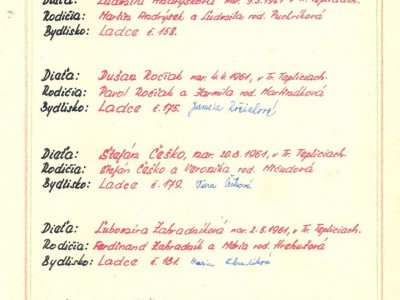 Dieťa: Ľudmila Andrýsková nar. 9.3.1961 v Tr. Tepliciach.
Rodičia: Martin Andrýsek a Ľudmila rod. Puchríková
Bydlisko: Ladce č. 158.
Dieťa: Dušan Rociak nar. 4.4.1961, v Tr. Tepliciach.
Rodičia: Pavol Rociak a Jarmila rod. Martindková
Bydlisko: Ladce č. 175.
Dieťa: Štefán Češko, nar. 20.8.1961, v Tr. Tepliciach.
Rodičia: Štefán Češko a Veronika rod. Mičudová
Bydlisko: Ladce č. 179. Viera Češková
Dieťa: Ľubomíra Zahradníková nar. 2.5.1961, v Tr. Tepliciach.
Rodičia: Ferdinand Zahradník a Mária rod. Hrehušová
Bydlisko: Ladce č. 181. Mária